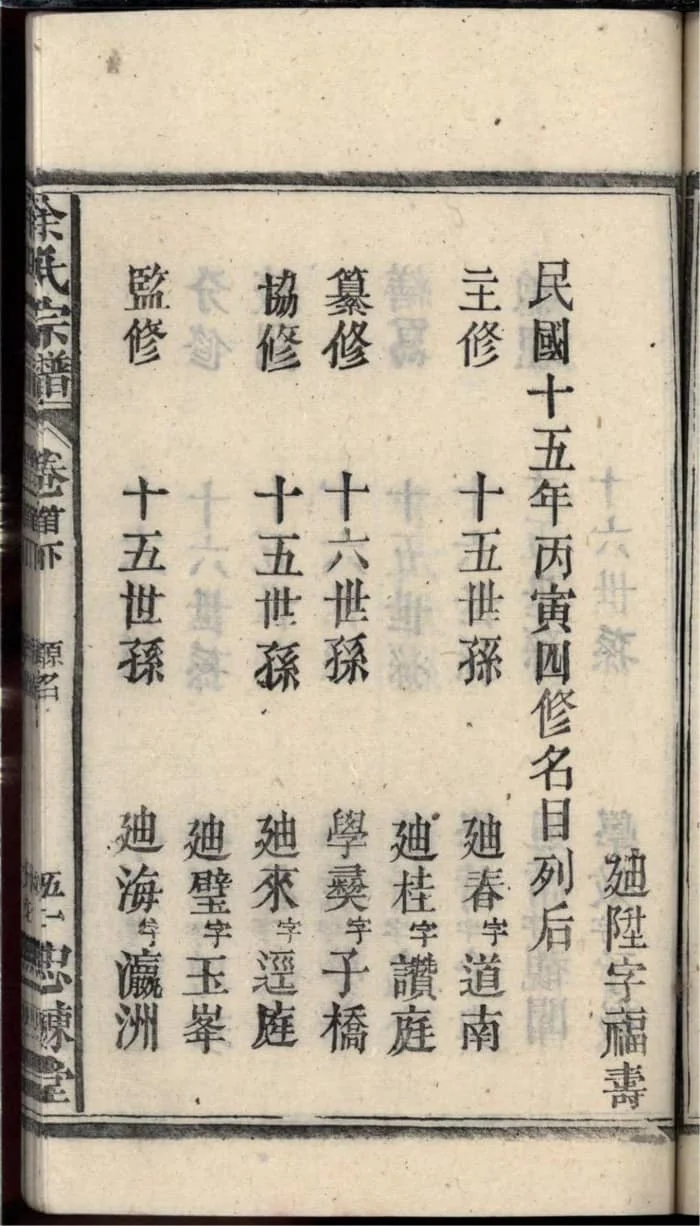 廸陞字福壽
民國十五年丙寅四修名目列后
主修 十五世孫 廸春字道南
廸桂字讚庭
纂修 十六世孫 學彝字子橋
協修 十五世孫 廸來字逕庭
廸璧字玉峯
監修 十五世孫 廸海字瀛洲
徐氏宗譜 卷首下 源名 五十 忠諫堂